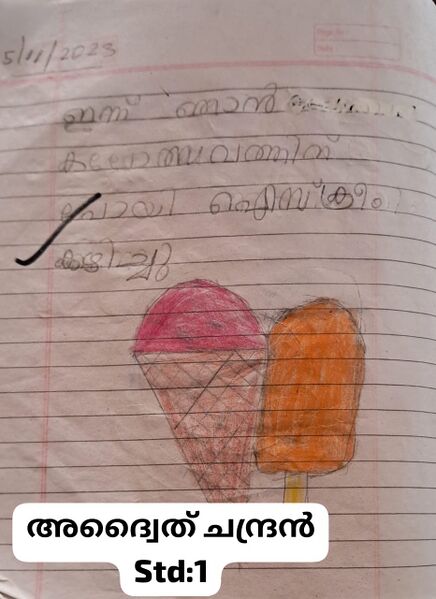 5/11/2023
ഇന്ന് ഞാൻ
കലോത്സവത്തിന്
പോയി ഐസ്ക്രീം
കഴിച്ചു
അദ്വൈത് ചന്ദ്രൻ
Std:1